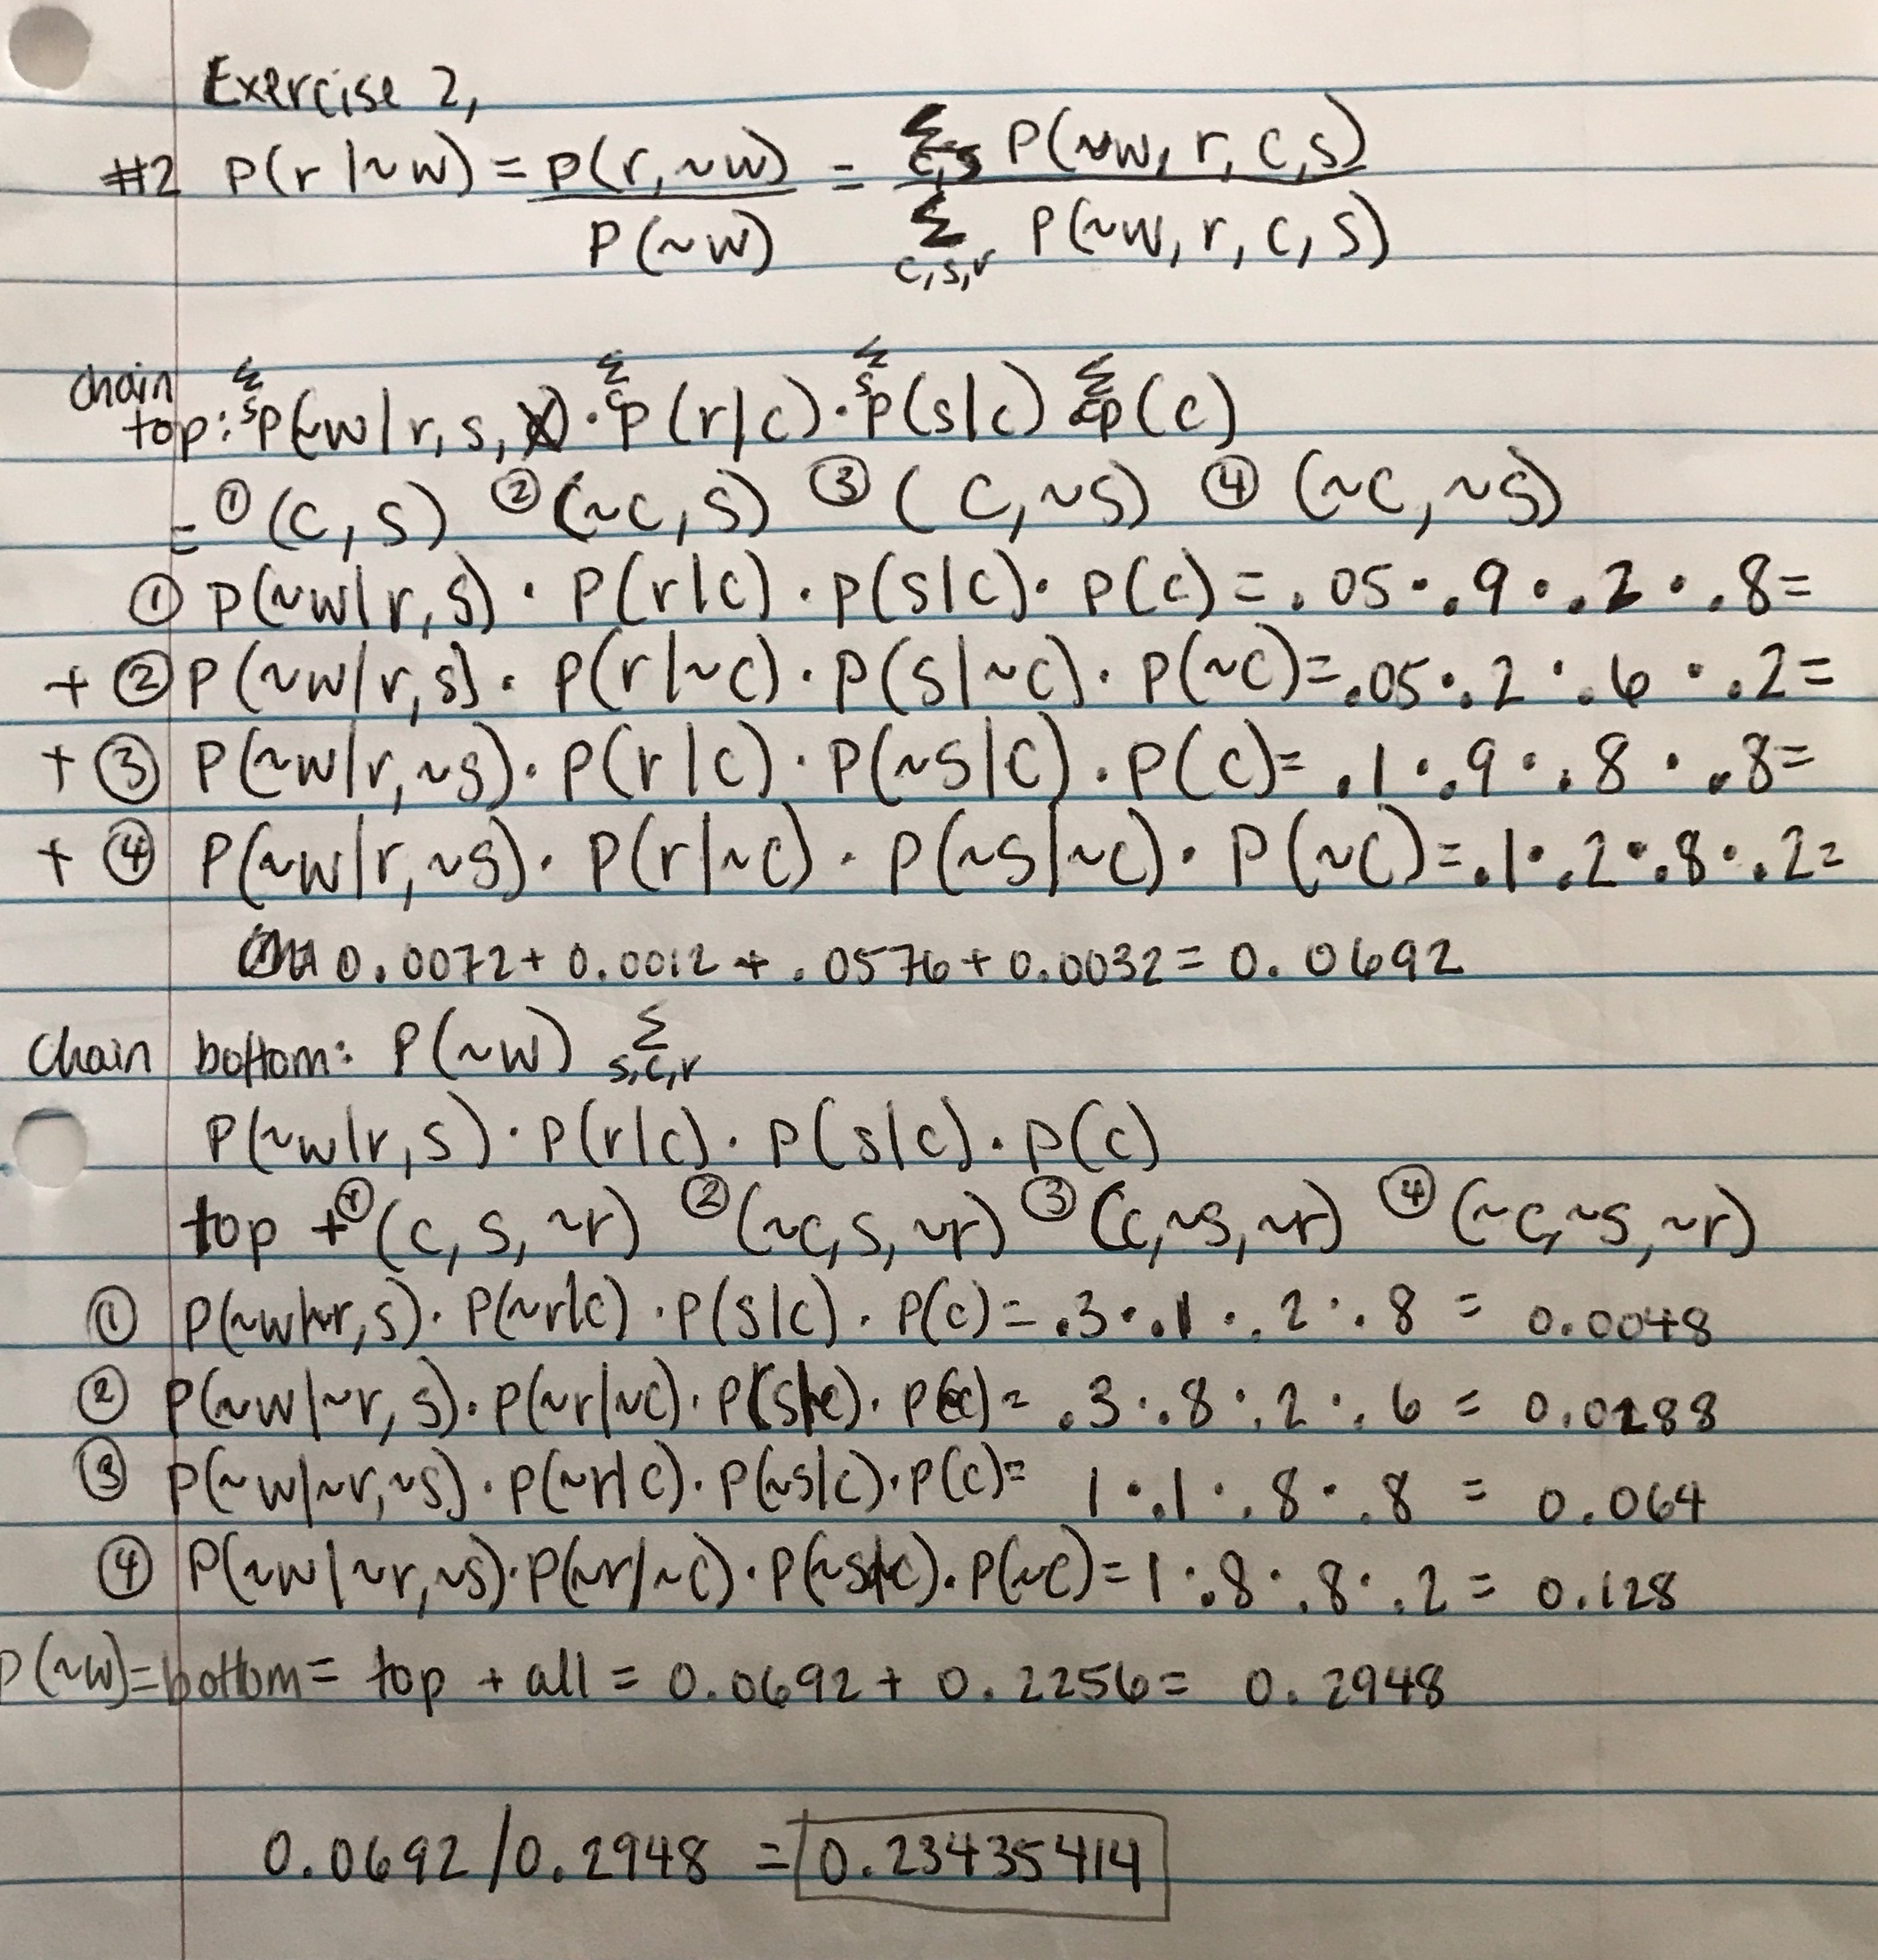 Exercise 2,
#2 P(r|~w) = P(r,~w) / P(~w) = Σ c,s P(~w, r, c, s) / Σ c,s,r P(~w, r, c, s)
chain
top: Σ s P(~w|r, s, ) · Σ c P(r|c) · Σ s P(s|c) Σ c P(c)
= ① (c, s) ② (~c, s) ③ (c,~s) ④ (~c,~s)
① P(~w|r, s) · P(r|c) · P(s|c) · P(c) = .05 · .9 · .2 · .8 =
+ ② P(~w|r, s) · P(r|~c) · P(s|~c) · P(~c) = .05 · .2 · .6 · .2 =
+ ③ P(~w|r,~s) · P(r|c) · P(~s|c) · P(c) = .1 · .9 · .8 · .8 =
+ ④ P(~w|r,~s) · P(r|~c) · P(~s|~c) · P(~c) = .1 · .2 · .8 · .2 =
0.0072 + 0.0012 + .0576 + 0.0032 = 0.0692
Chain bottom: P(~w) Σ s,c,r
P(~w|r, s) · P(r|c) · P(s|c) · P(c)
top + ① (c, s, ~r) ② (~c, s, ~r) ③ (c,~s,~r) ④ (~c,~s,~r)
① P(~w|~r, s) · P(~r|c) · P(s|c) · P(c) = .3 · .1 · .2 · .8 = 0.0048
② P(~w|~r, s) · P(~r|~c) · P(s|~c) · P(~c) = .3 · .8 · .2 · .6 = 0.0288
③ P(~w|~r,~s) · P(~r|c) · P(~s|c) · P(c) = 1 · .1 · .8 · .8 = 0.064
④ P(~w|~r,~s) · P(~r|~c) · P(~s|~c) · P(~c) = 1 · .8 · .8 · .2 = 0.128
P(~w) = bottom = top + all = 0.0692 + 0.2256 = 0.2948
0.0692/0.2948 = 0.23435414